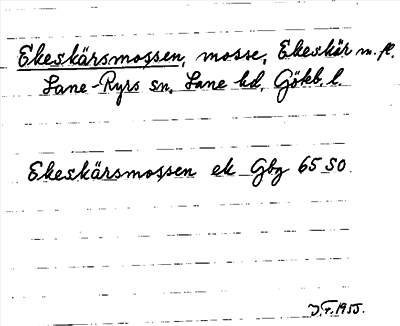 Ekeskärsmossen, mosse, Ekeskär m. fl.
Lane-Ryrs sn, Lane hd, Götb. l.
Ekeskärsmossen ek Gbg 65 SO
J.F. 1955.